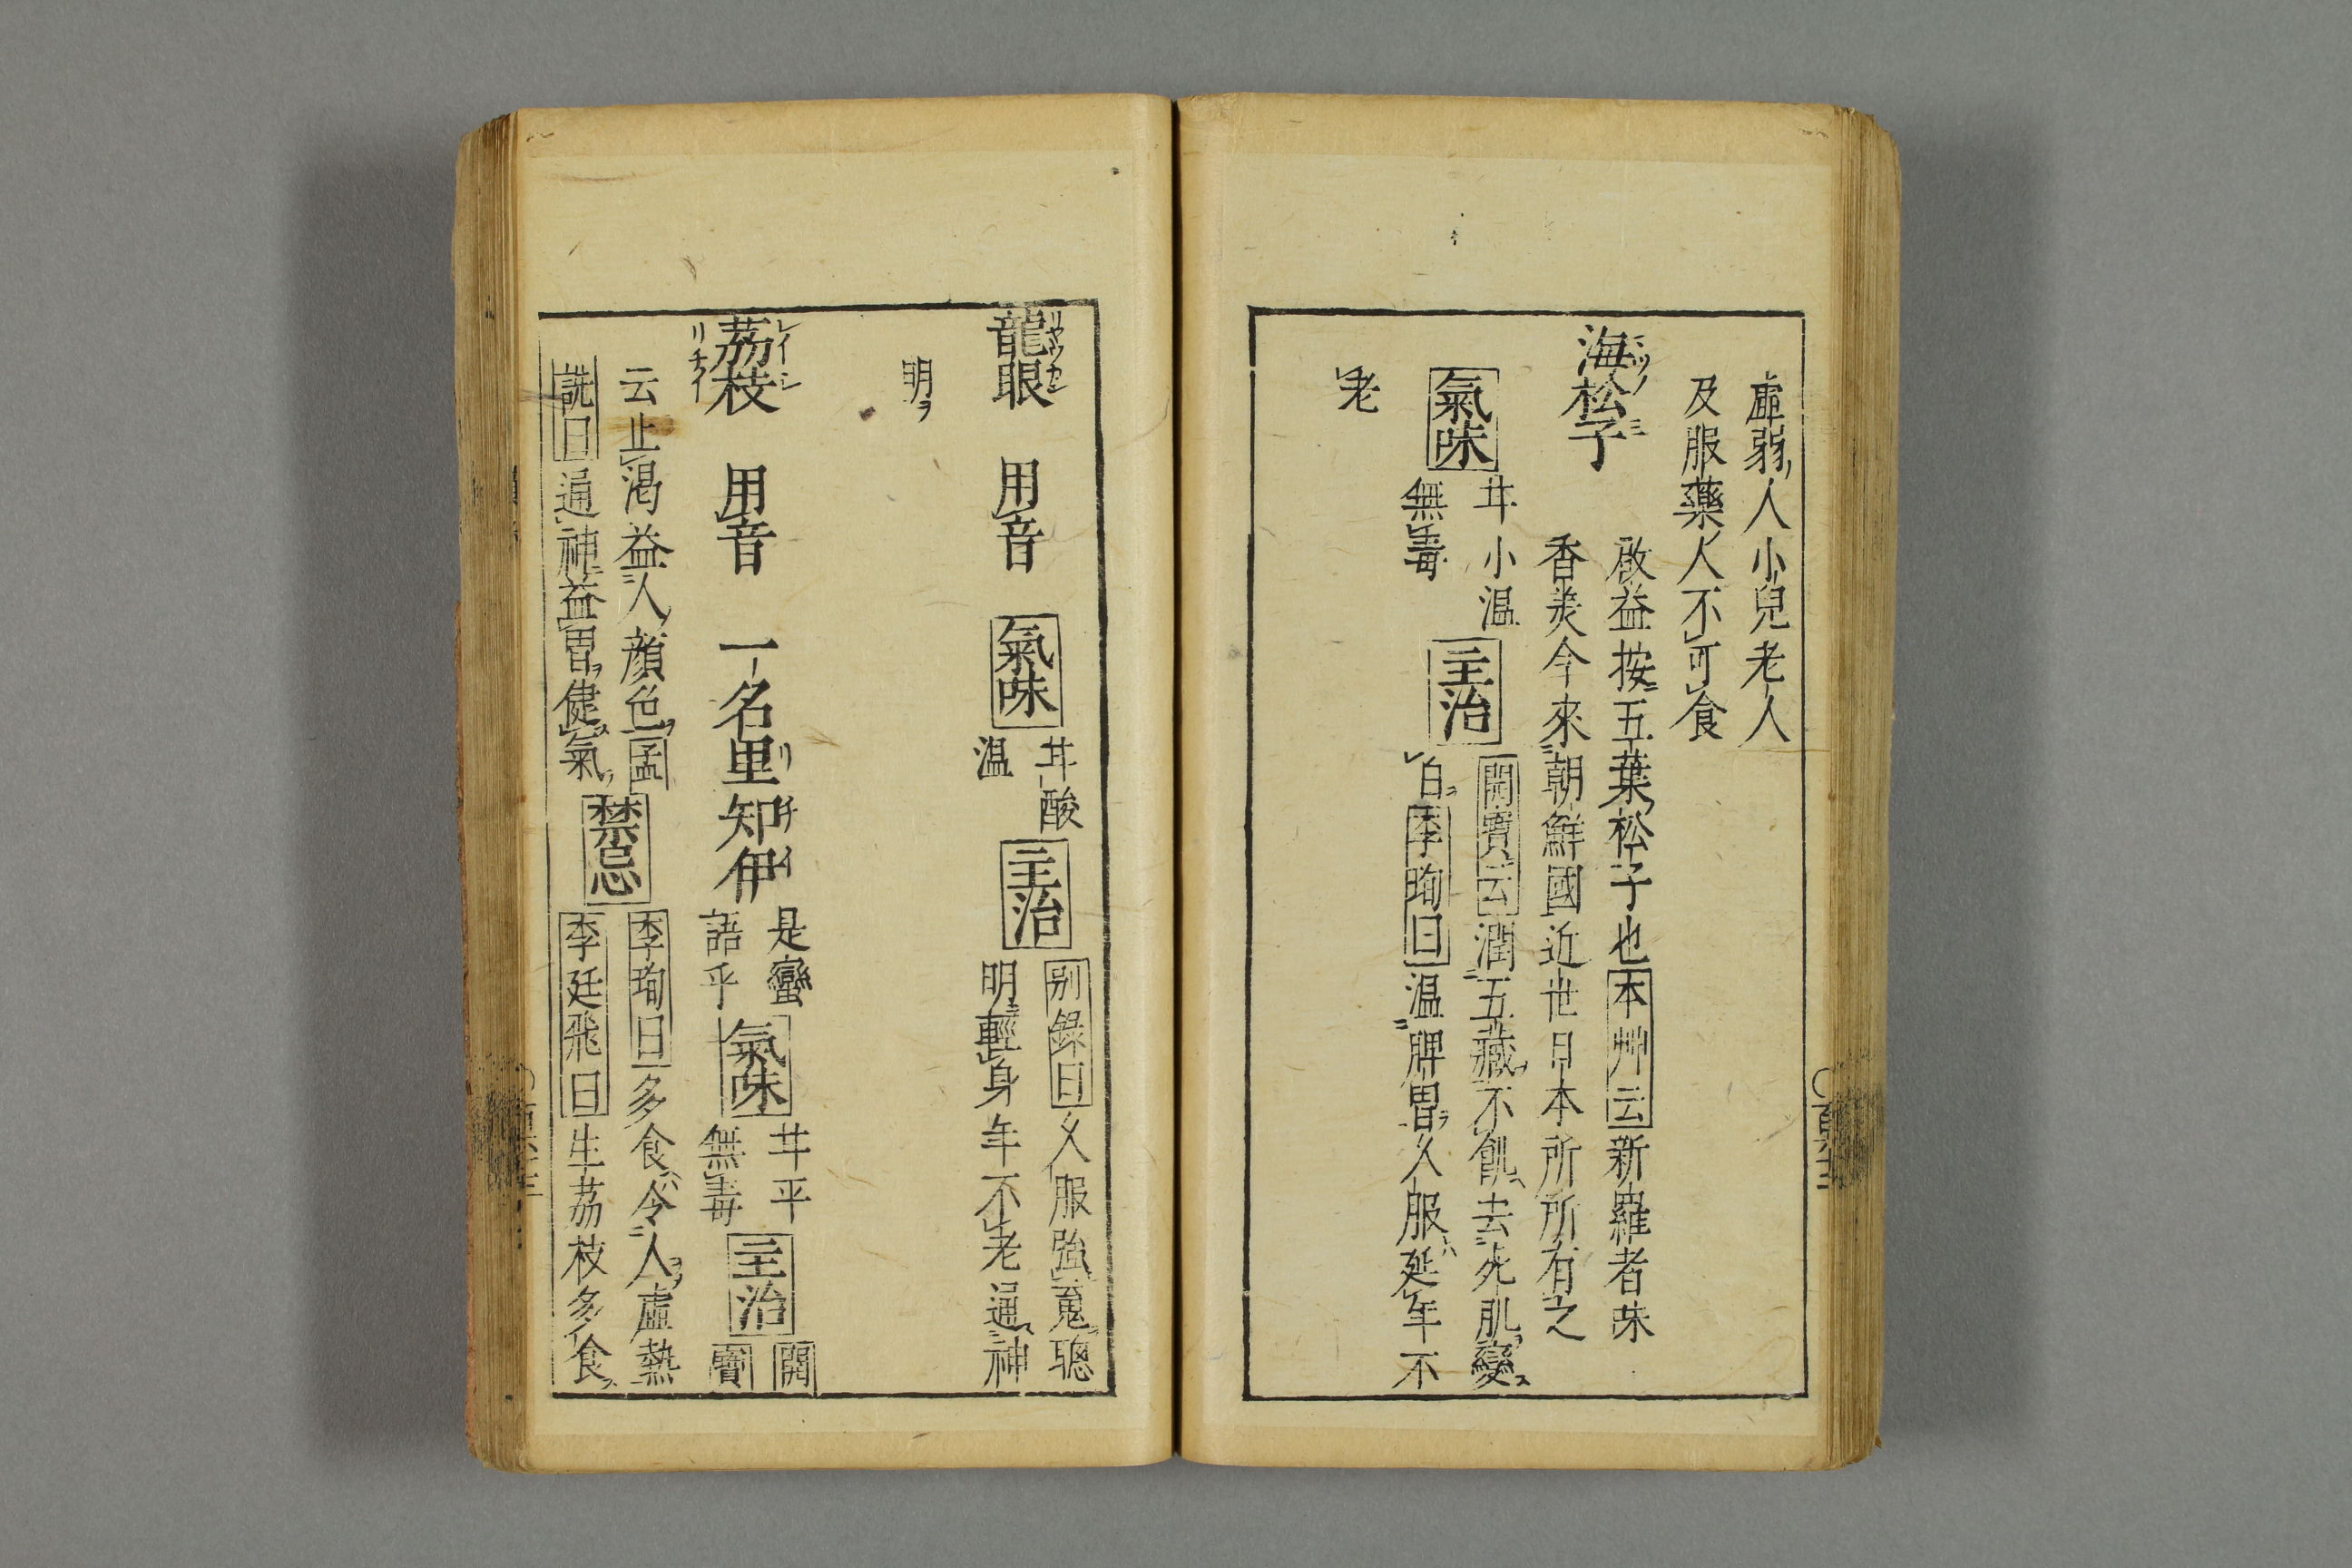 虚弱人小兒老人
及服藥人不可食
海松子
啟益按五葉松子也本艸云新羅者味
香美今來朝鮮國近世日本所所有之
氣味
甘小温
無毒
主治
開寶云潤五藏不飢去死肌變
白李珣曰温脾胃久服延年不
老
龍眼 用音
氣味
甘酸
温
主治
別錄曰久服強䰟聰
明輕身年不老通神
明ヲ
茘枝 用音 一名里知伊
レイシ
リチイ
リチイ
是蠻
語乎
氣味
甘平
無毒
主治
開
寶
云止渇益人顔色孟
詵曰通神益胃健氣
禁忌
李珣曰多食令人虚熱
李廷飛曰生茘枝多食